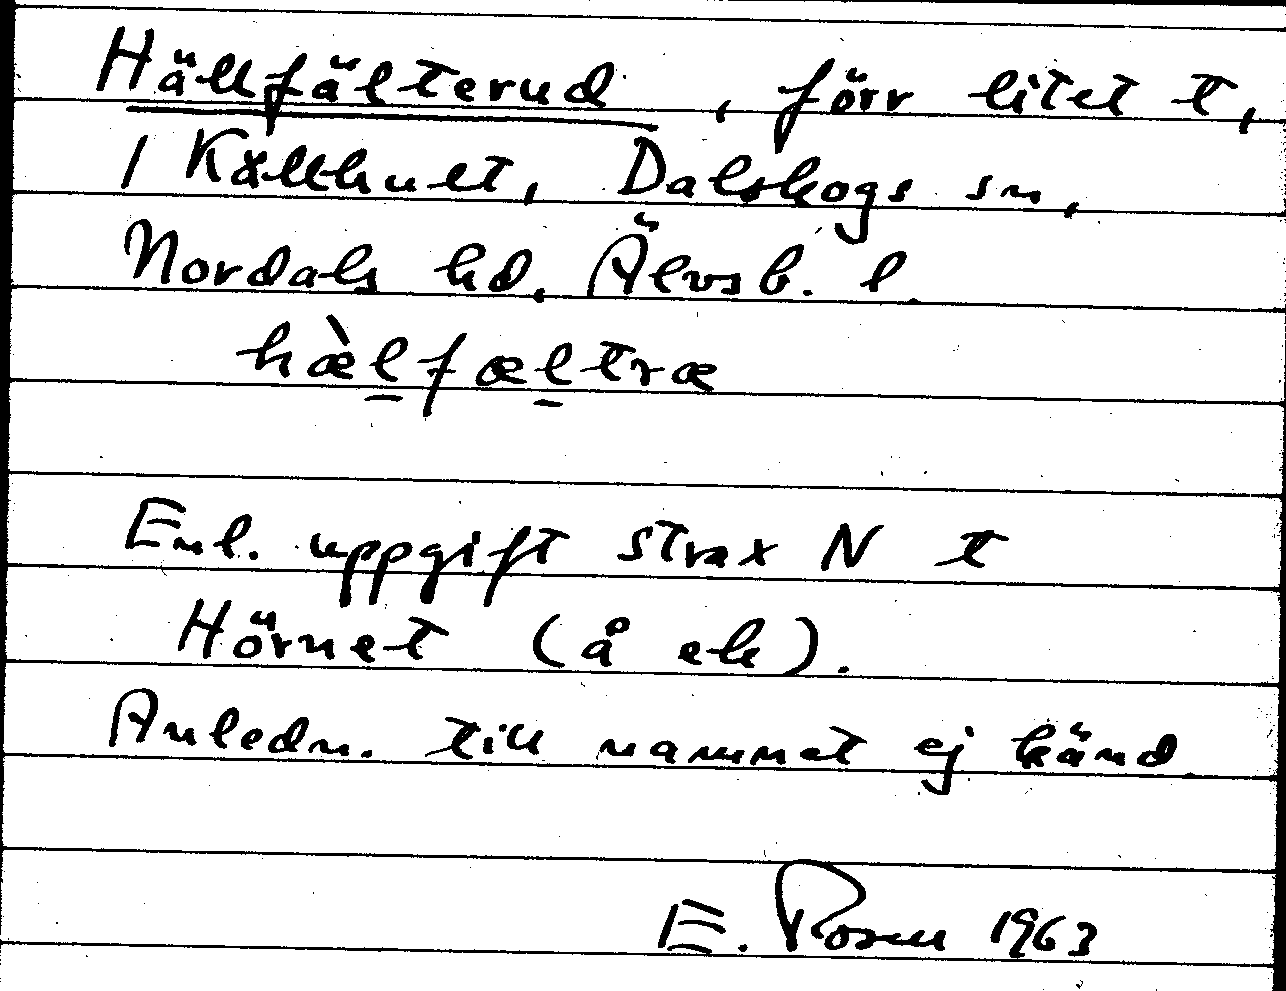 Hällfälterud, förr litet t,
/ Källhult, Dalskogs sn,
Nordals hd, Älvsb. l.
hæ̀lfæltræ
Enl. uppgift strax N t
Hörnet (å ek).
Anledn. till namnet ej känd.
E. Rosen 1963